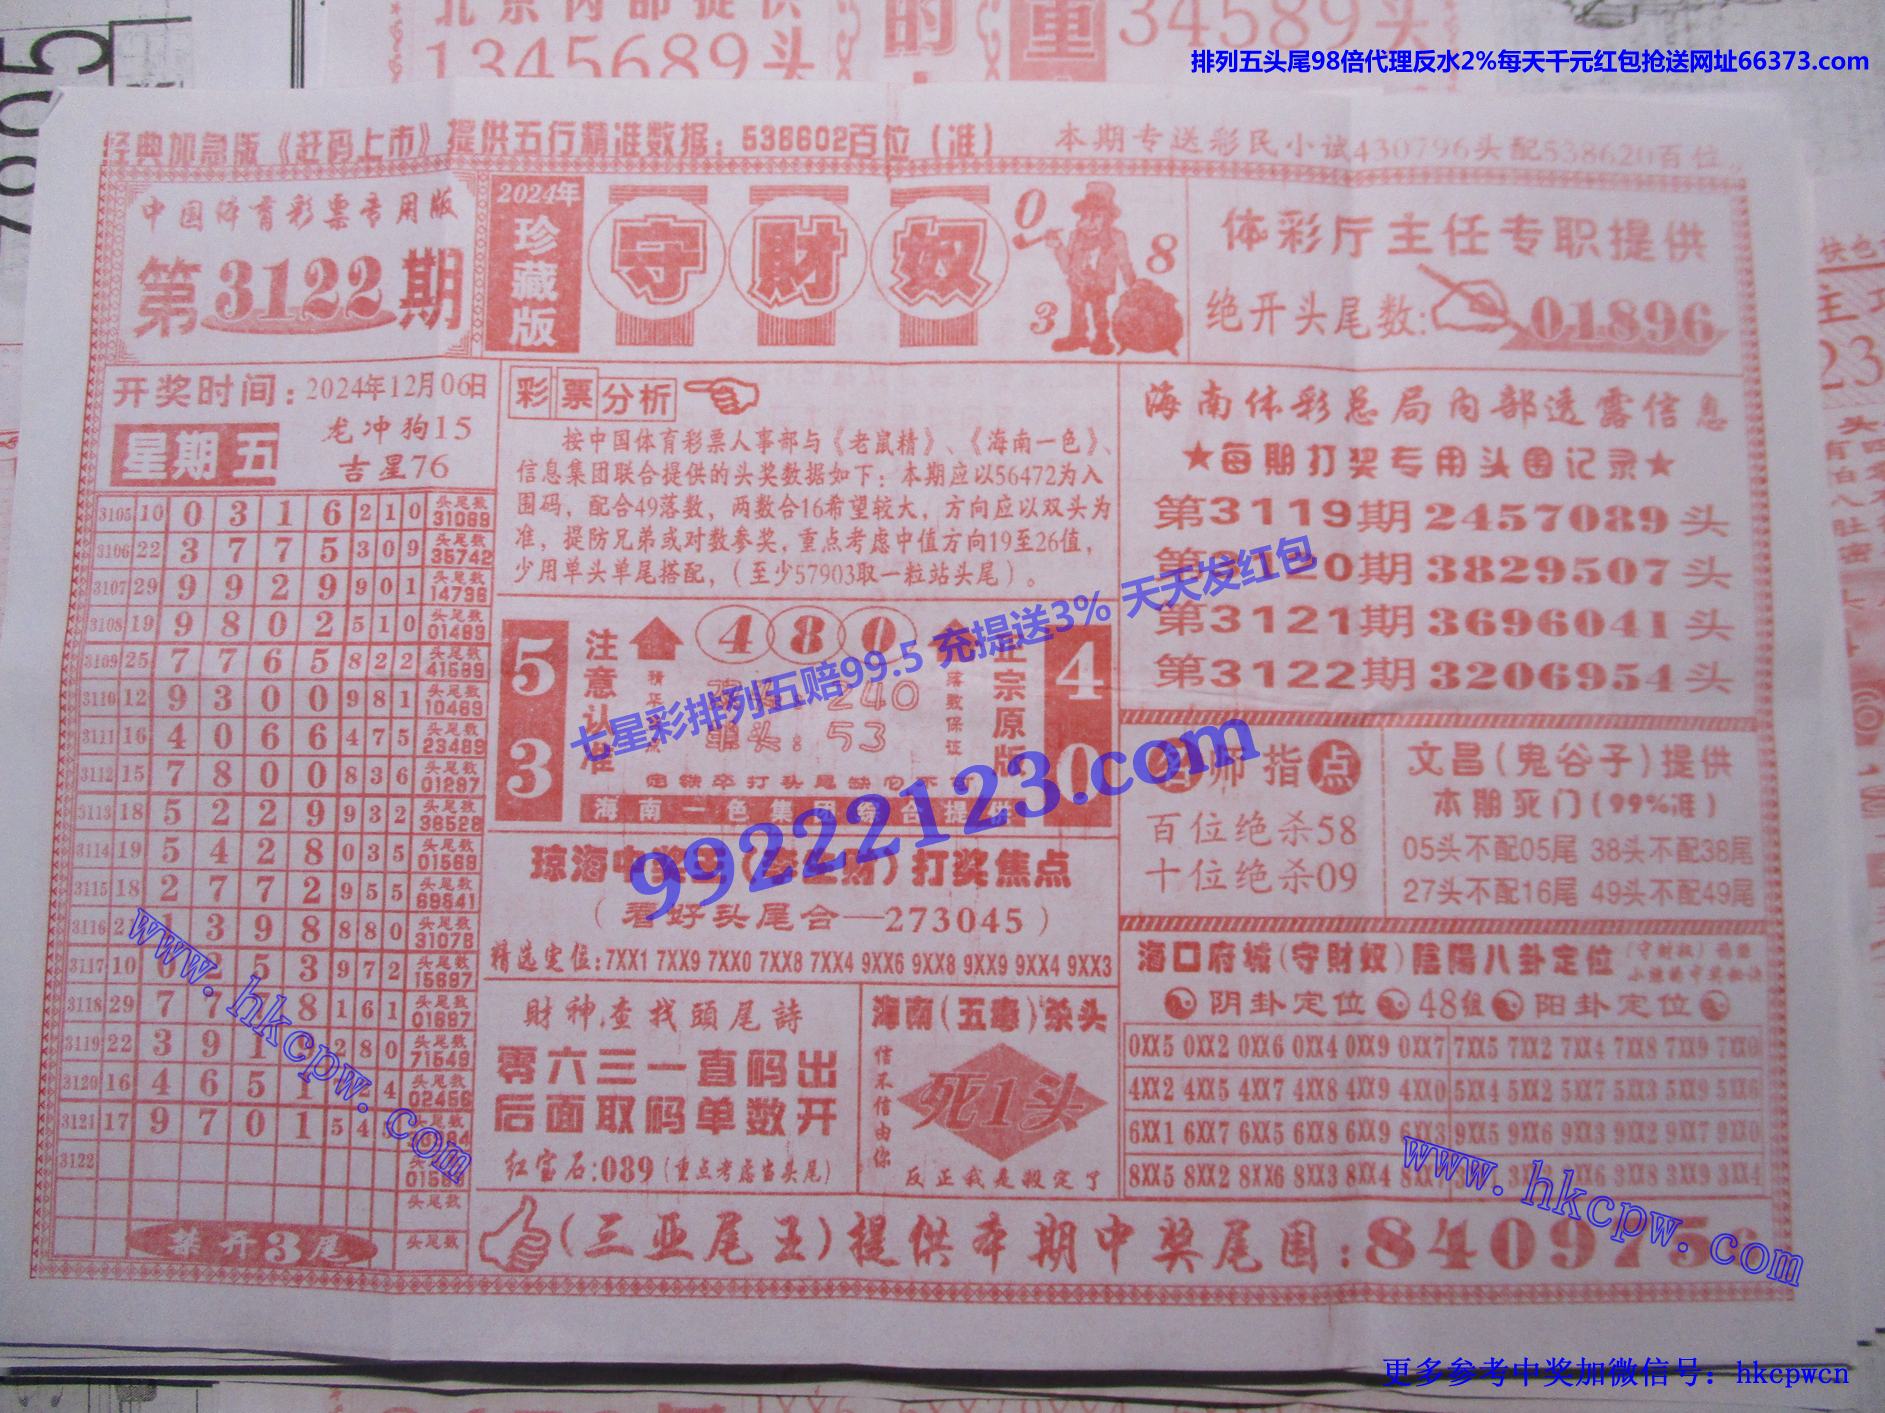 北京内部提供
1345689头
34589头
排列五头尾98倍代理反水2%每天千元红包抢送网址66373.com
经典加急版《赶码上市》提供五行精准数据：538602百位（准）
本期专送彩民小试430796头配538620百位
中国体育彩票专用版
第3122期
2024年
珍藏版
守財奴
0
8
3
体彩厅主任专职提供
绝开头尾数:01896
开奖时间：2024年12月06日
星期五
龙冲狗15
吉星76
3105 10 0 3 1 6 2 1 0 头尾数 31089
3106 22 3 7 7 5 3 0 9 头尾数 35742
3107 29 9 9 2 9 9 0 1 头尾数 14796
3108 19 9 8 0 2 5 1 0 头尾数 01489
3109 25 7 7 6 5 8 2 2 头尾数 41589
3110 12 9 3 0 0 9 8 1 头尾数 10469
3111 16 4 0 6 6 4 7 5 头尾数 23489
3112 15 7 8 0 0 8 3 6 头尾数 01297
3113 18 5 2 2 9 9 3 2 头尾数 36528
3114 19 5 4 2 8 0 3 5 头尾数 01569
3115 18 2 7 7 2 9 5 5 头尾数 69841
3116 21 1 3 9 8 8 8 0 头尾数 31076
3117 10 0 2 5 3 9 7 2 头尾数 15697
3118 29 7 7 7 8 1 6 1 头尾数 01697
3119 22 3 9 1 9 2 8 0 头尾数 71549
3120 16 4 6 5 1 2 4 头尾数 02456
3121 17 9 7 0 1 5 4 头尾数
3122
头尾数
头尾数
禁开3尾
彩票分析
按中国体育彩票人事部与《老鼠精》、《海南一色》、
信息集团联合提供的头奖数据如下：本期应以56472为入
围码，配合49落数，两数合16希望较大，方向应以双头为
准，提防兄弟或对数参奖，重点考虑中值方向19至26值，
少用单头单尾搭配，（至少57903取一粒站头尾）。
53
注意认准
480
240
头：53
落数保证
正宗原版
40
定铁卒打头尾缺它不可
海南一色集团综合提供
打奖焦点
（看好头尾合—273045）
精选定位:7XX1 7XX9 7XX0 7XX8 7XX4 9XX6 9XX8 9XX9 9XX4 9XX3
財神查找頭尾詩
零六三一直码出
后面取码单数开
红宝石:089(重点考虑当头尾)
海南(五毒)杀头
信不信由你
死1头
反正我是報定了
海南体彩总局内部透露信息
★每期打奖专用头围记录★
第3119期2457089头
第3120期3829507头
第3121期3696041头
第3122期3206954头
名师指点
百位绝杀58
十位绝杀09
文昌(鬼谷子)提供
本期死门(99%准)
05头不配05尾 38头不配38尾
27头不配16尾 49头不配49尾
海口府城(守財奴)陰陽八卦定位
阴卦定位 48组 阳卦定位
0XX5 0XX2 0XX6 0XX4 0XX9 0XX7 7XX5 7XX2 7XX4 7XX8 7XX9 7XX0
4XX2 4XX5 4XX7 4XX8 4XX9 4XX0 5XX4 5XX2 5XX7 5XX3 5XX9 5XX6
6XX1 6XX7 6XX5 6XX8 6XX9 6XX3 9XX5 9XX6 9XX3 9XX2 9XX7 9XX0
8XX5 8XX2 8XX6 8XX3 8XX4 3XX8 3XX9 3XX4
(三亚尾王)提供本期中奖尾围:840975
七星彩排列五赔99.5 充提送3% 天天发红包
99222123.com
www.hkcpw.com
www.hkcpw.com
更多参考中奖加微信号：hkcpwcn